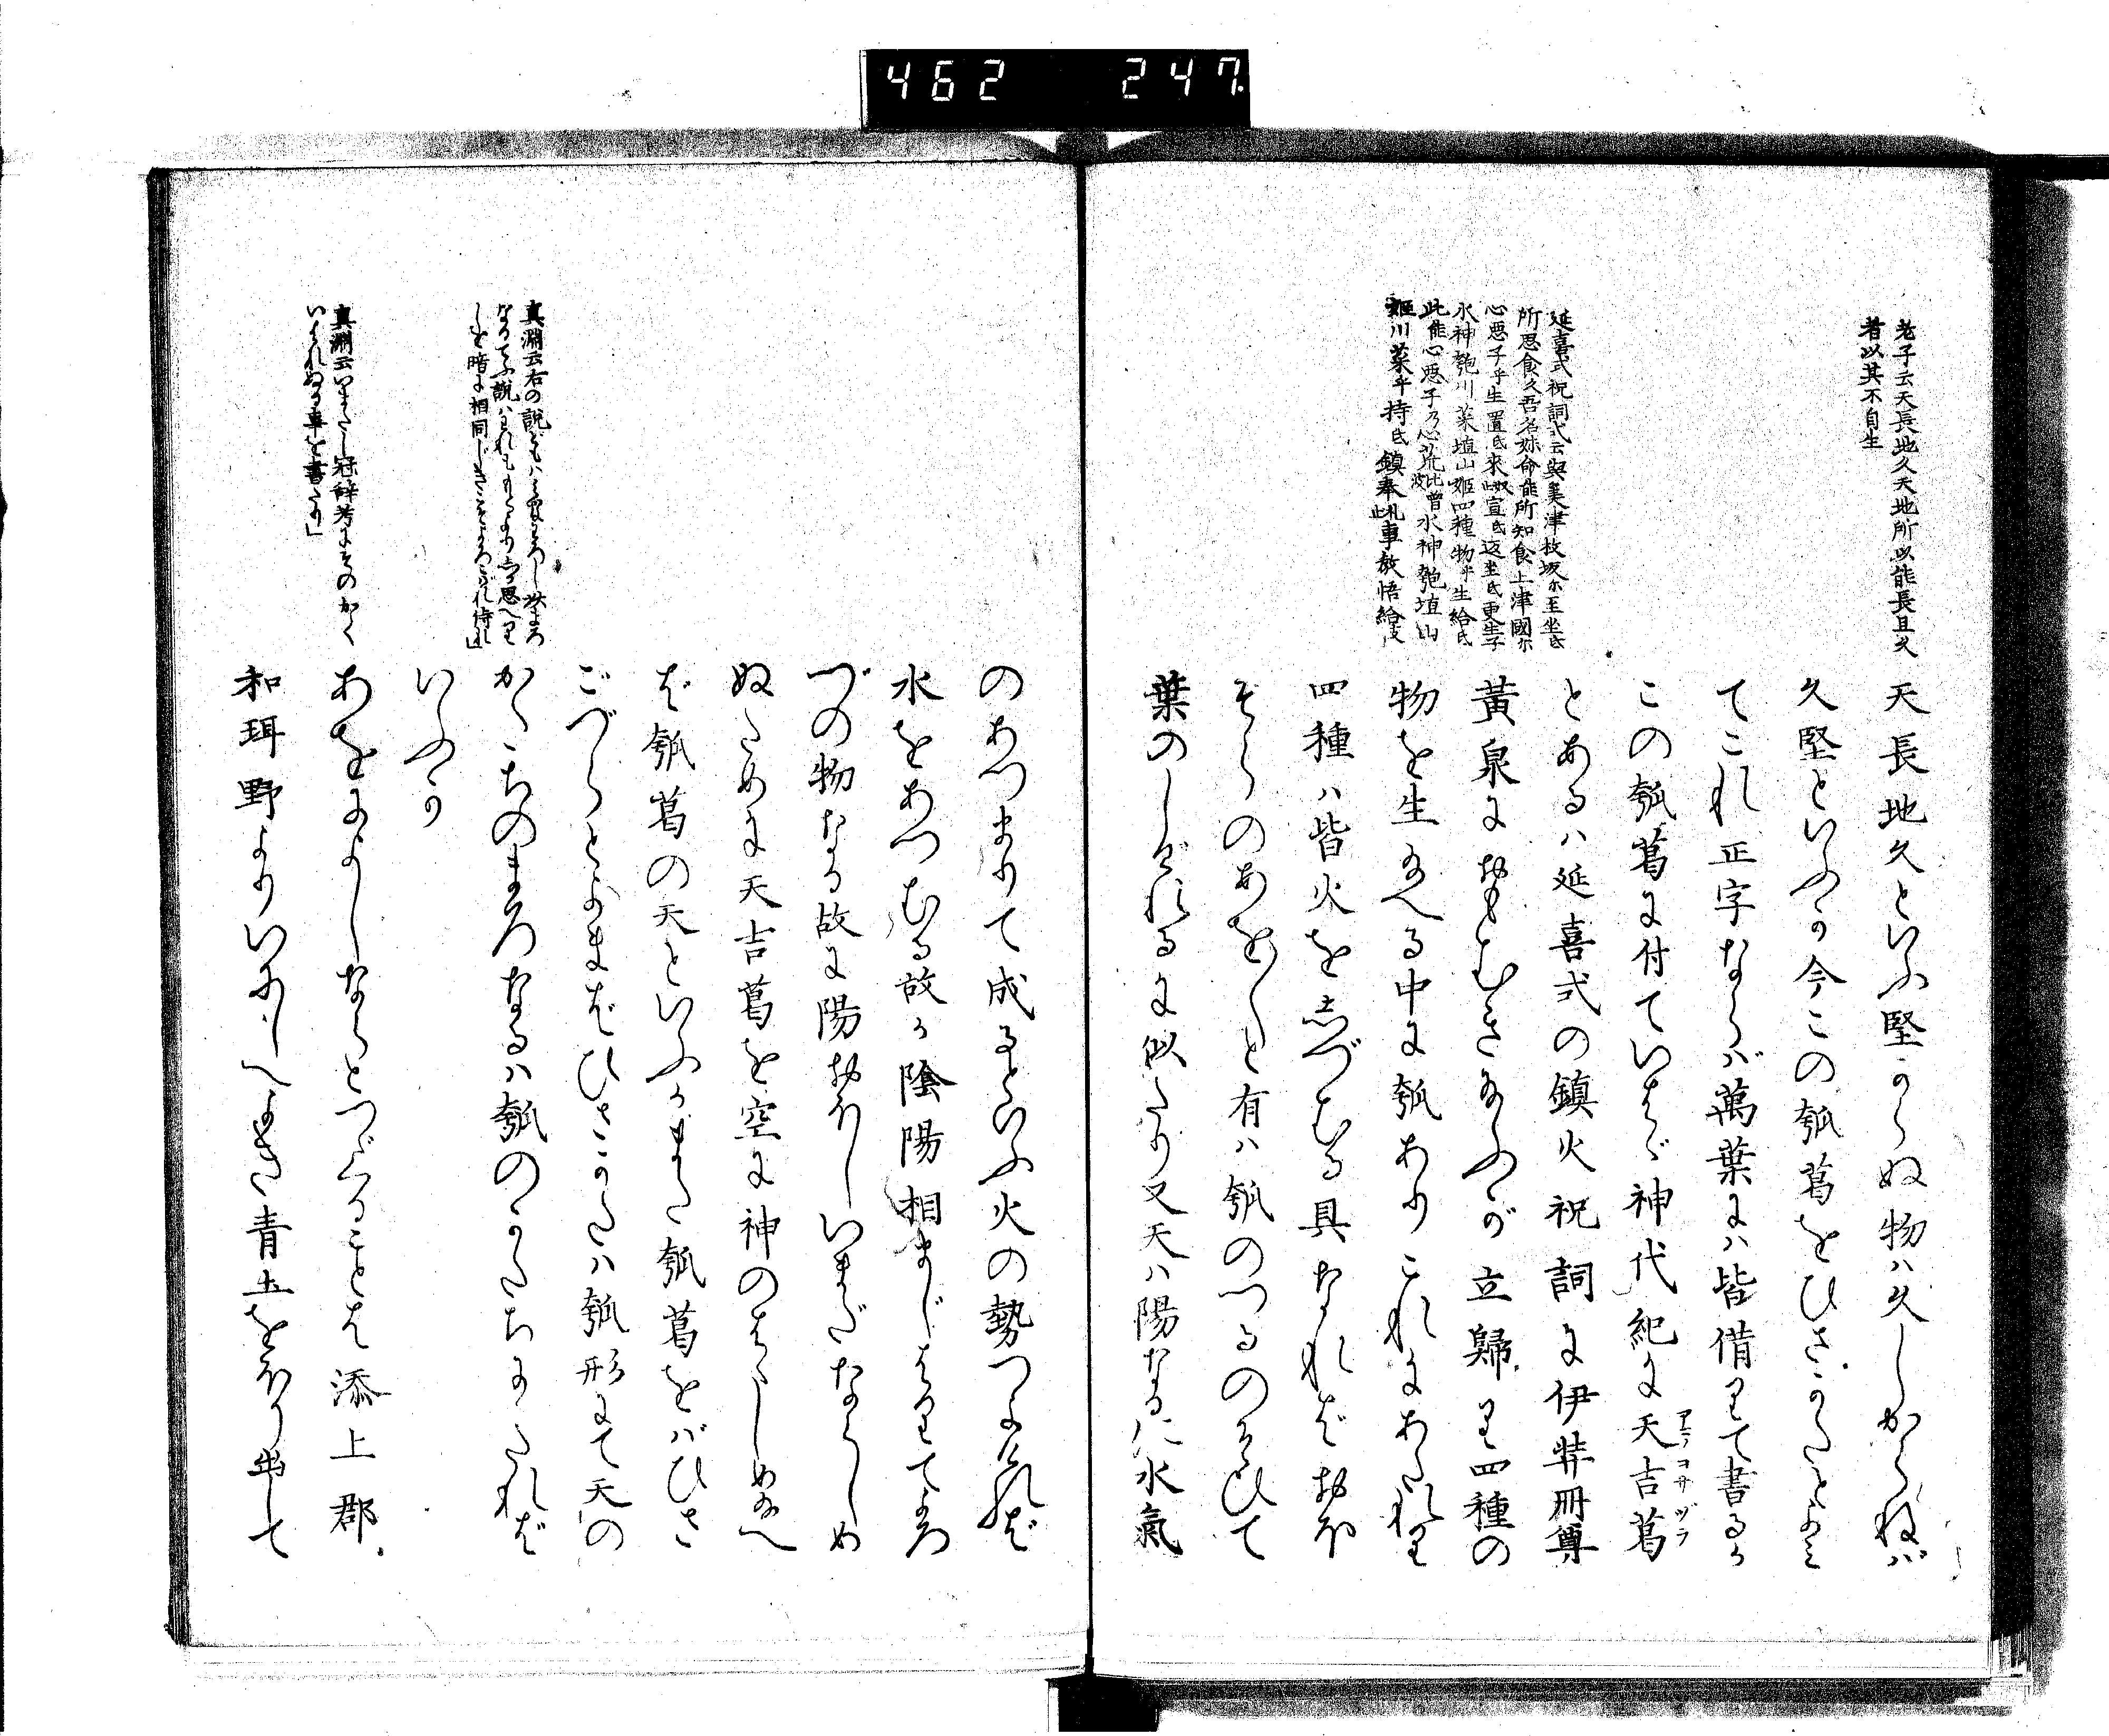 462 247
老子云天長地久天地所以能長且久
者以其不自生
天長地久といふ堅からぬ物ハ久しからねバ
久堅といふか今この瓠葛をひさかたとよみ
てこれ正字ならバ萬葉にハ皆借りて書るか
この瓠葛に付ていはゞ神代紀に天吉葛
アマノヨサヅラ
とあるハ延喜式の鎮火祝詞に伊弉冊尊
黄泉におもむき給ふが立歸り四種の
物を生給へる中に瓠ありこれにあたれり
四種ハ皆火をしづむる具なればおほ
そらのあを〳〵と有ハ瓠のつるのはひて
葉のしげれるに似たり又天ハ陽なるに水氣
延喜式祝詞式云與美津枚坂尓至坐氐
所思食久吾名妹命能所知食上津國尓
心悪子乎生置氐來奴宣氐返坐氐更生子
水神匏川菜埴山姬四種物乎生給氐
此能心悪子乃心荒比曾波水神匏埴山
姬川菜乎持氐鎮奉礼止事教悟給支
のあつまりて成るといふ火の勢つよければ
水をあつむる故か陰陽相まじはりてよろ
づの物なる故に陽おほしいまだならしめ
ぬために天吉葛を空に神のはらしめ給へ
ば瓠葛の天といふかまた瓠葛をバひさ
ごづらとよまばひさかたハ瓠形にて天の
かたちのまろなるハ瓠のかたちにたれば
いふか
あをによしならとつゞくることは添上郡
和珥野よりいにしへよき青土をほり出して
真淵云右の説どもハ
なるてふ説ハわれももとより思へり
しを暗に相同じきこそよろこばれ侍れ」
真淵云いまだし冠辞考にそのかく
いはれぬる事を書たり」